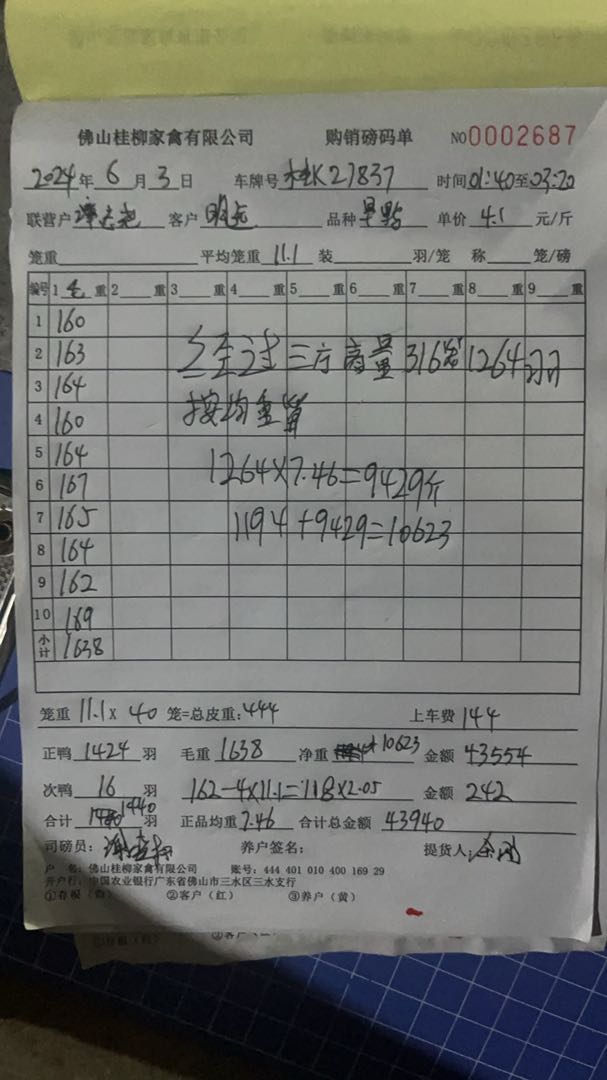 佛山桂柳家禽有限公司 购销磅码单 NO0002687
2024年6月3日 车牌号 桂K27837 时间01:40至03:20
联营户 客户 明远 品种 单价 4.1 元/斤
笼重 平均笼重 11.1 装 羽/笼 称 笼/磅
编号 1 毛 重 2 重 3 重 4 重 5 重 6 重 7 重 8 重 9 重
1 160
2 163
3 164
4 160
5 164
6 167
7 165
8 164
9 162
10 169
小计 1638
经过三方商量316笼1264羽
按均重算
1264×7.46=9429斤
1194+9429=10623
笼重 11.1× 40 笼=总皮重:444 上车费 144
正鸭 1424 羽 毛重 1638 净重 10623 金额 43554
次鸭 16 羽 162-4×11.1=118×2.05 金额 242
合计 1440 羽 正品均重 7.46 合计总金额 43940
司磅员: 养户签名: 提货人:
户 名:佛山桂柳家禽有限公司 账号:444 401 010 400 169 29
开户行:中国农业银行广东省佛山市三水区三水支行
①存根(白) ②客户(红) ③养户(黄)